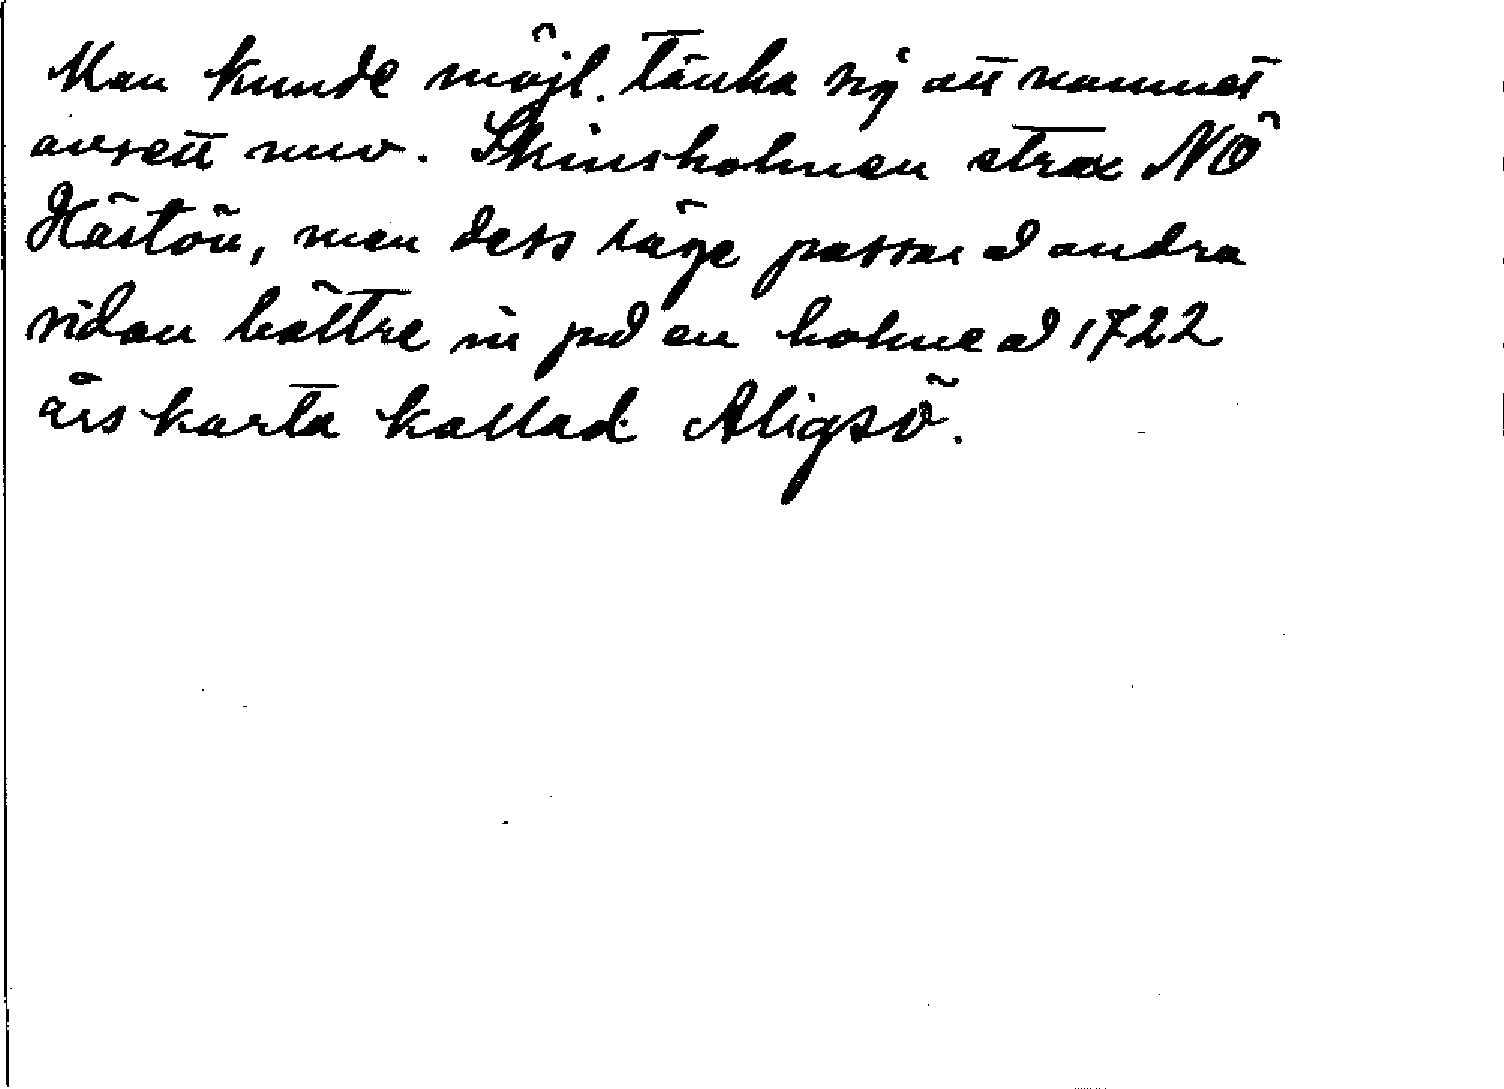 Man kunde möjl. tänka sig att namnet
avsett nuv. Skinsholmen strax NÖ
Hästön, men dess läge passar å andra
sidan bättre in på en holme å 1722
års karta kallad Aligsö.